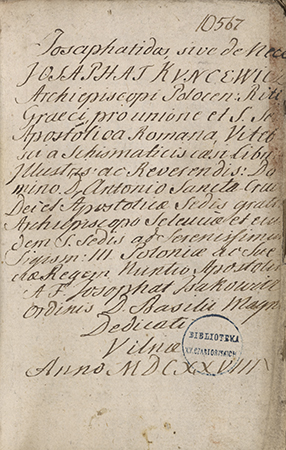 10567
Josaphatidos, sive de Nece
JOSAPHAT KVNCEWICZ
Archiepiscopi Polocen: Riti
Graeci, pro unione et S. Se
Apostolica Romana, Vitebs
a Schismaticis caesi Libri
Illustriss: ac Reverendis: Do
mino D. Antonio Sancta Cruc
Dei et Apostolicæ Sedis gratia
Archiepiscopo Seleuciæ et eius
dem S. Sedis ad Serenissimum
Sigism: III Poloniæ ac Sue
ciæ Regem Nuntio Apostolic
A F. Josaphat Isakowicz
Ordinis D. Basilii Magni
Dedicati
Vilnæ
Anno MDCXXVIII
BIBLIOTEKA
XX. CZARTORYSKICH